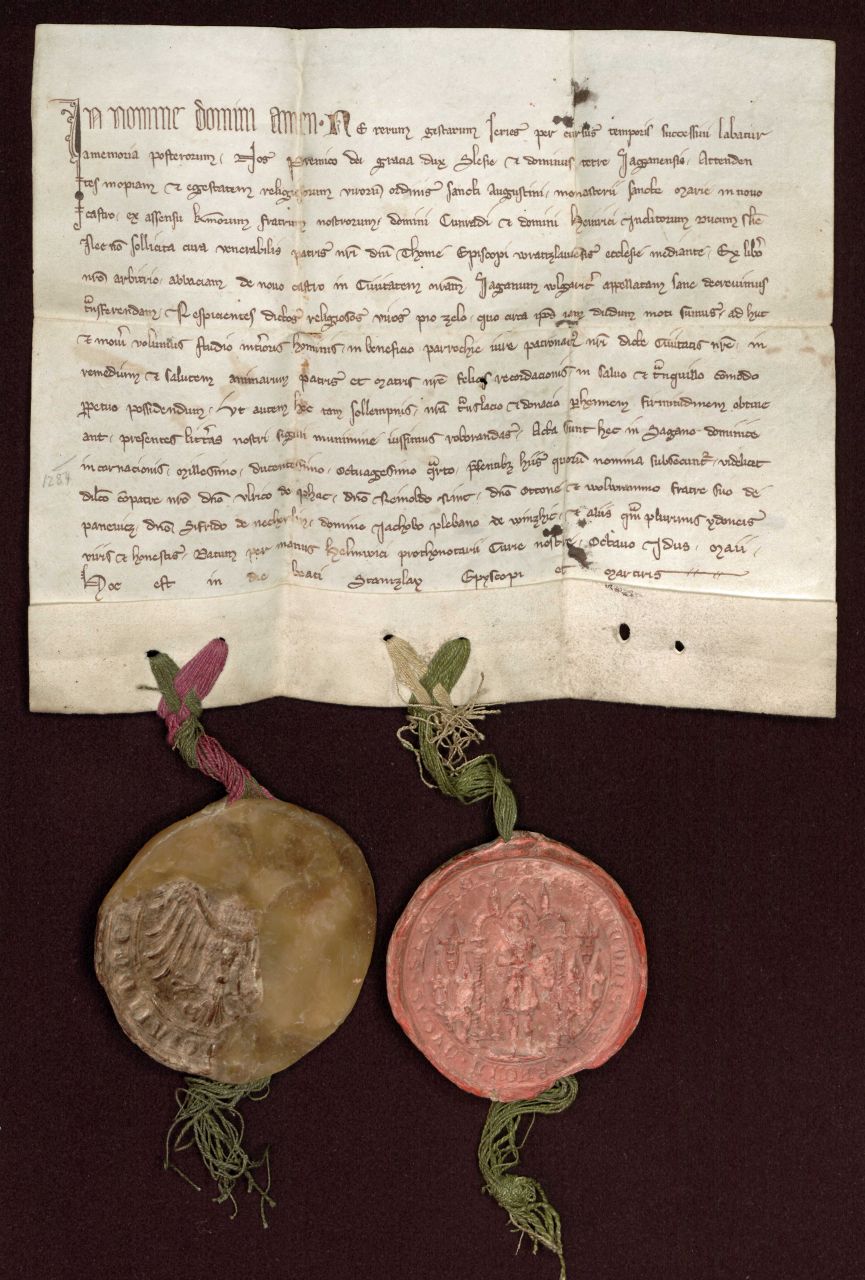 In nomine domini amen. Ne rerum gestarum series per cursus temporis successiui labatur
a memoria posterorum. Nos Premico dei gracia dux Slesie et dominus terre Saganensis. Attenden
tes inopiam et egestatem religiosorum virorum ordinis sancti Augustini. monasterii sancte Marie in nouo
castro. ex assensu fratrum nostrorum. domini Cunradi et domini Heinrici Inclitorum Ducum
sollicita cura venerabilis patris nri dni Thome Episcopi wratzlauiensis ecclesie mediante. Ex libero
nro arbitrio. abbaciam de nouo castro in Ciuitatem nram Saganum wlgariter appellatam sane decreuimus
transferendam. Respicientes dictos religiosos viros pio zelo. quo circa ipsos iam dudum moti sumus. ad huc
et noui voluntatis studio interioris hominis. in beneficio parrochie iure patronatus nri dicte Ciuitatis nre. in
remedium et salutem animarum patris et matris nre felicis recordacionis. in saluo et tranquillo modo
perpetuo possidendum. Ut autem hec tam sollempnis. nra translacio et donacio perhennem firmitudinem obtine
ant. presentes litteras nostri sigilli munimine iussimus roborandas. Acta sunt hec in Sagano dominice
incarnacionis. Millesimo. ducentesimo. Octuagesimo quarto. presentibus hiis quorum nomina subsecuntur. videlicet
dilecto conpatre nro dno vlrico de phac. dno Reinoldo Rint. dno Ottone et wolurammo fratre suo de
panewicz. dno Sifrido de. domino Jachobo plebano de winzhc. et aliis quam plurimis ydoneis
viris et honestis. Datum per manus Helmwici prothonotarii Curie nostre. Octauo Idus. Maii.
Hoc est in die beati Stanizlay Epyscopi et martiris
1284